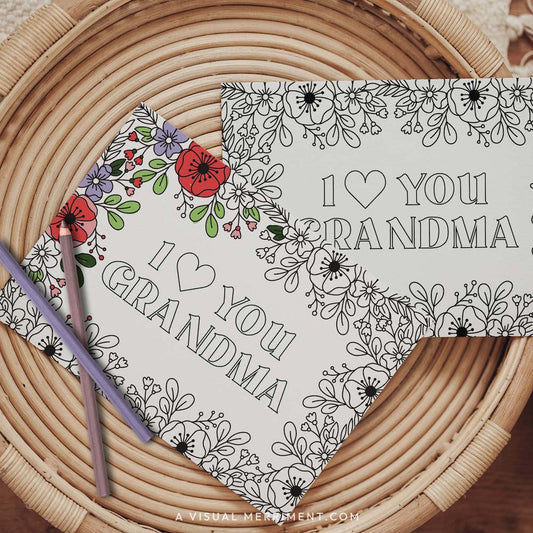 I ♡ YOU
GRANDMA
I ♡ YOU
GRANDMA
A VISUAL MERRIMENT .COM